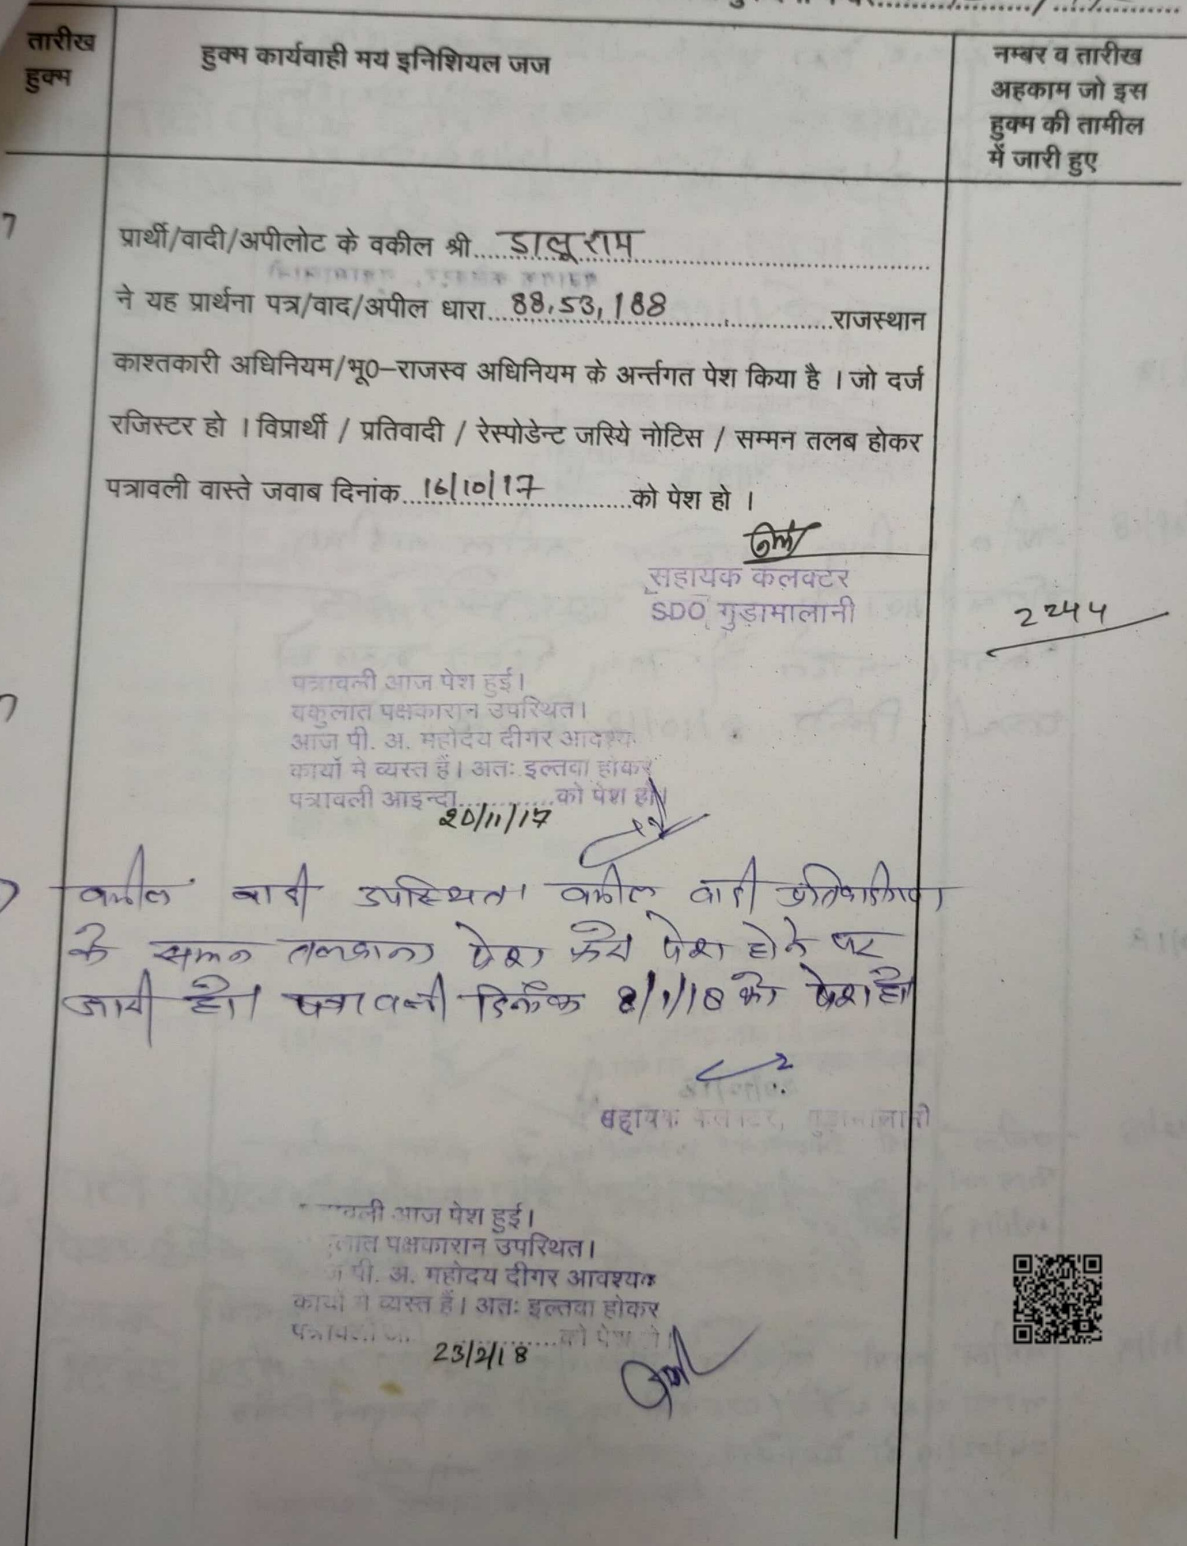 तारीख
हुक्म
हुक्म कार्यवाही मय इनिशियल जज
नम्बर व तारीख
अहकाम जो इस
हुक्म की तामील
में जारी हुए
प्रार्थी/वादी/अपीलोट के वकील श्री....डालूराम..............................
ने यह प्रार्थना पत्र/वाद/अपील धारा...88,53,188.....................राजस्थान
काश्तकारी अधिनियम/भू0–राजस्व अधिनियम के अर्न्तगत पेश किया है । जो दर्ज
रजिस्टर हो । विप्रार्थी / प्रतिवादी / रेस्पोडेन्ट जरिये नोटिस / सम्मन तलब होकर
पत्रावली वास्ते जवाब दिनांक...16/10/17............को पेश हो ।
सहायक कलक्टर
SDO गुड़ामालानी
2244
पत्रावली आज पेश हुई।
वकुलात पक्षकारान उपस्थित।
आज पी. अ. महोदय दीगर आवश्य
कार्यों मे व्यस्त हैं। अतः इल्तवा होकर
पत्रावली आइन्दा............को पेश हो।
20/11/17
वकील वादी उपस्थित। वकील वादी प्रतिवादीगण
के समन तलबाना पेश करे पेश होने पर
जारी हो। पत्रावली दिनांक 8/1/18 को पेश हो
सहायक कलक्टर, गुड़ामालानी
वली आज पेश हुई।
पक्षकारान उपस्थित।
पी. अ. महोदय दीगर आवश्यक
कार्यो मे व्यस्त हैं। अतः इल्तवा होकर
............को पेश
23/2/18